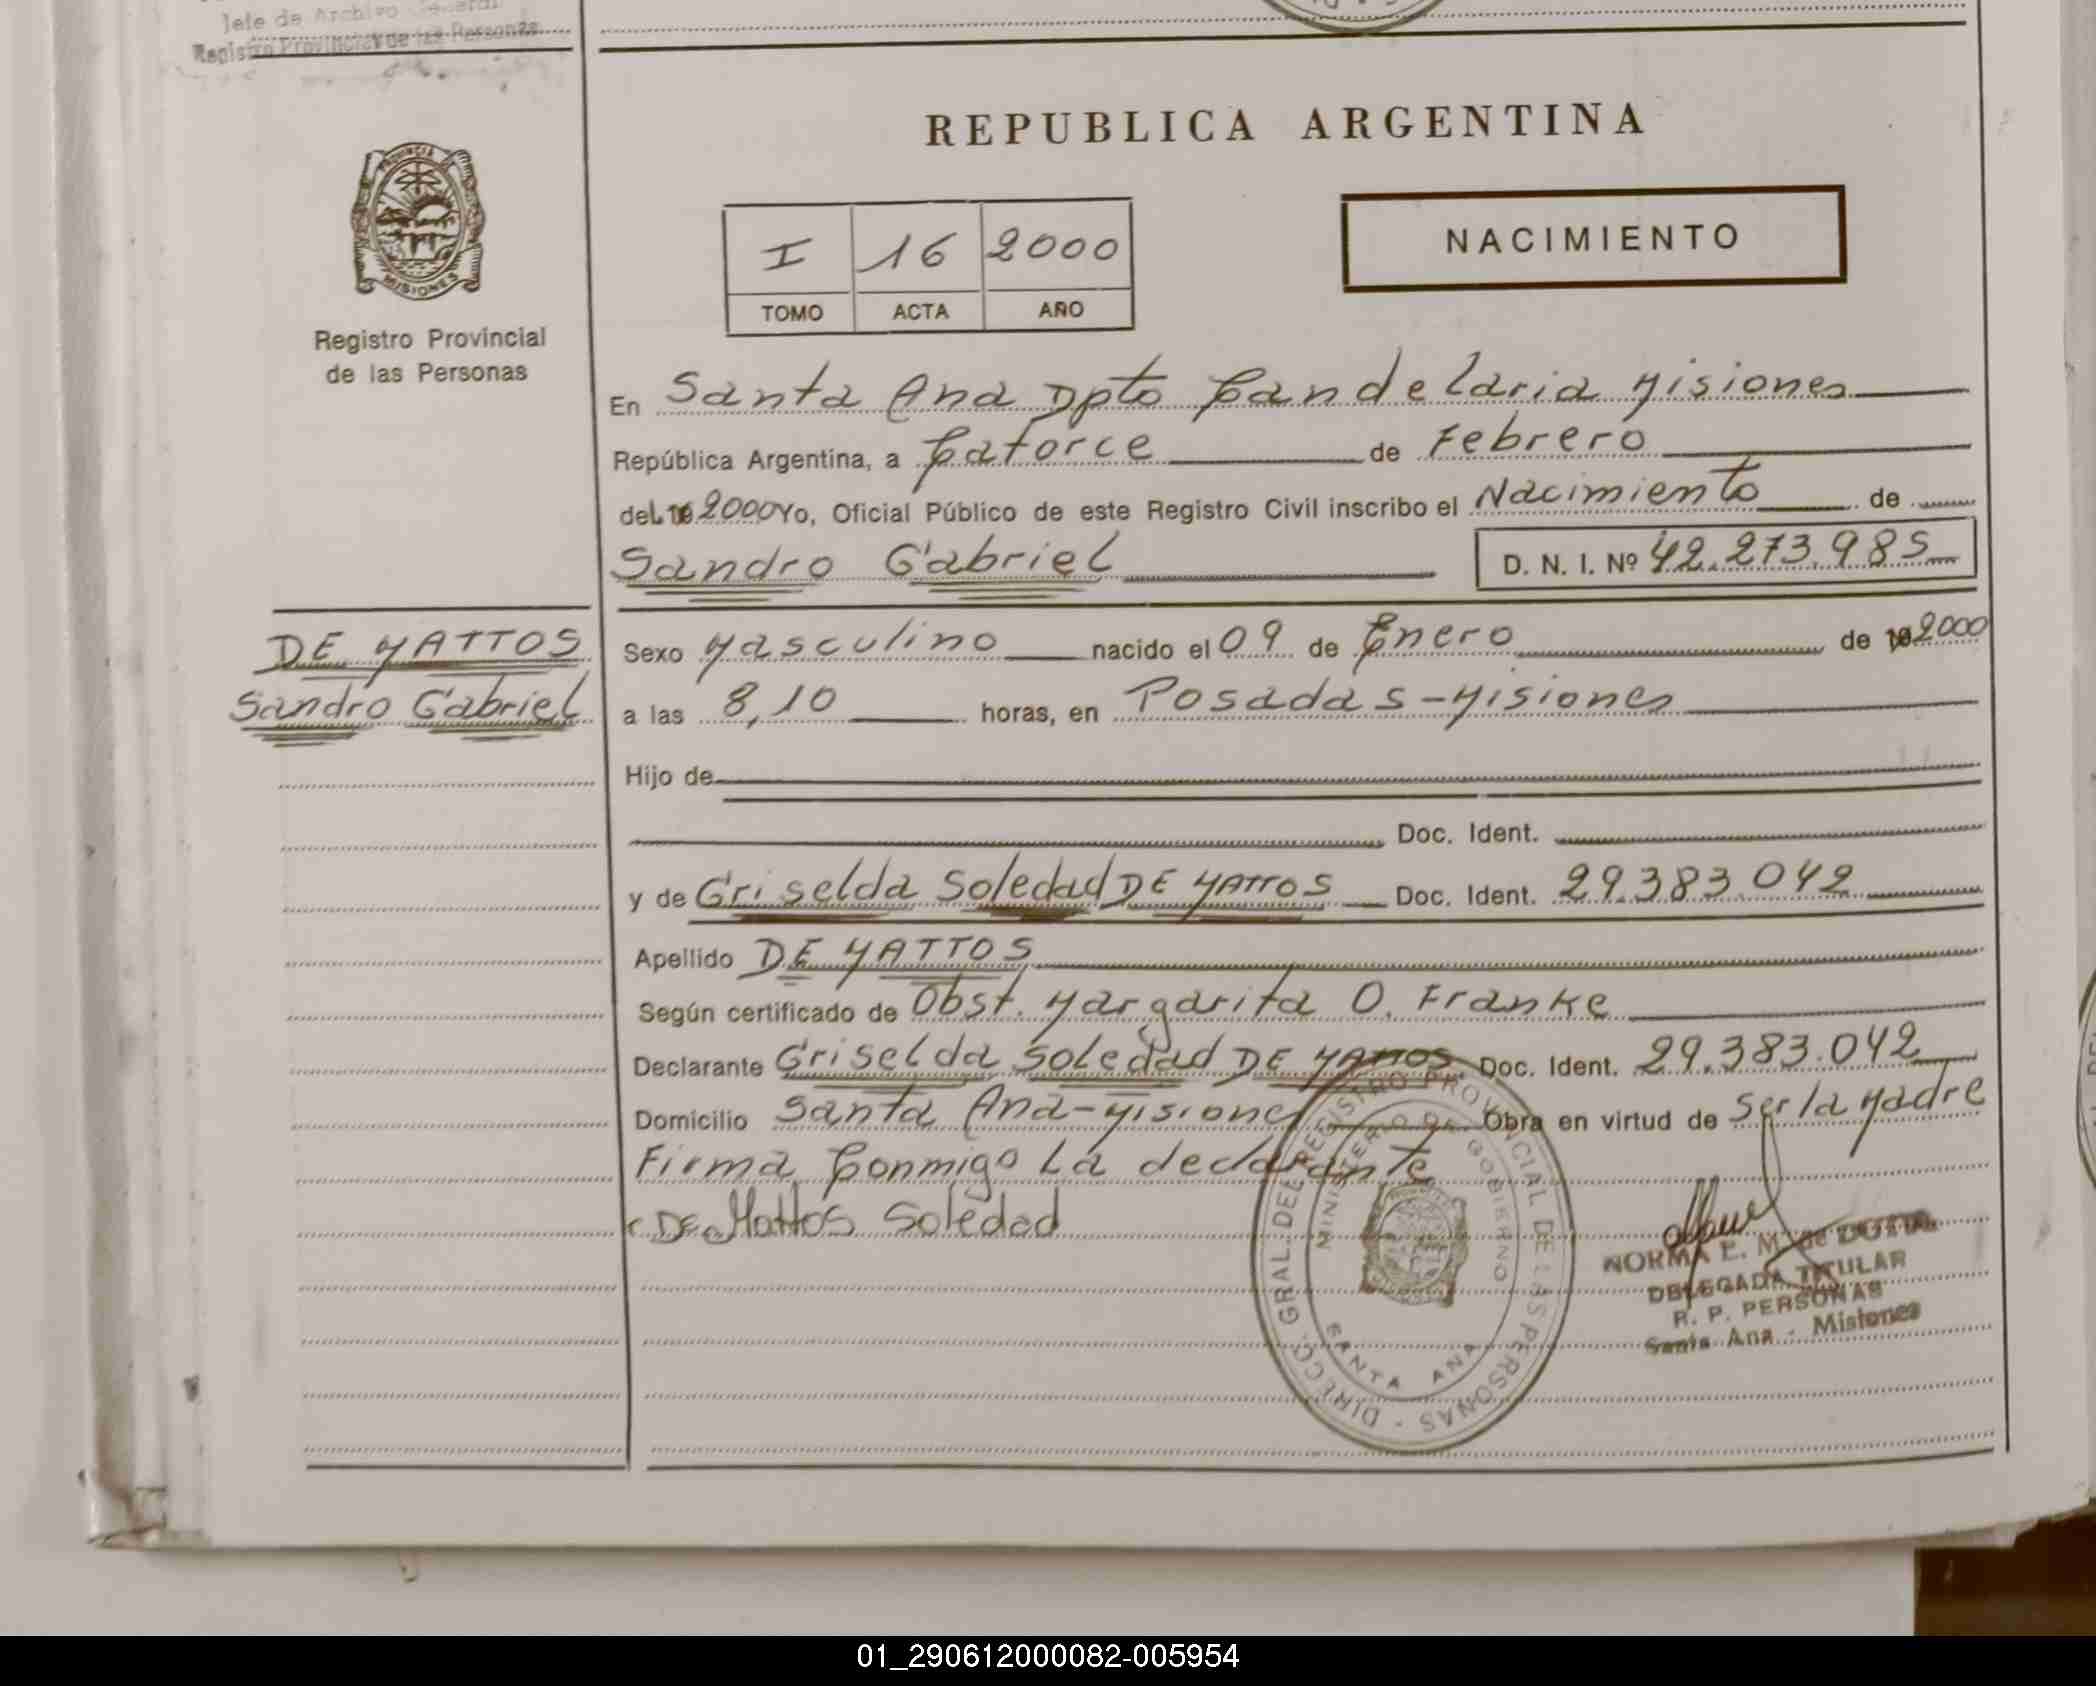 Jefe de Archivo General
Registro Provincial de las Personas
REPUBLICA ARGENTINA
PROVINCIA
MISIONES
I 16 2000
TOMO ACTA AÑO
NACIMIENTO
Registro Provincial
de las Personas
En Santa Ana Dpto Candelaria Misiones
República Argentina, a Catorce de Febrero
del 2000 Yo, Oficial Público de este Registro Civil inscribo el Nacimiento de
Sandro Gabriel D. N. I. Nº 42.273.985
DE MATTOS
Sandro Gabriel
Sexo Masculino nacido el 09 de Enero de 2000
a las 8,10 horas, en Posadas-Misiones
Hijo de
Doc. Ident.
y de Griselda Soledad DE MATTOS Doc. Ident. 29.383.042
Apellido DE MATTOS
Según certificado de Obst. Margarita O. Franke
Declarante Griselda Soledad DE MATTOS Doc. Ident. 29.383.042
Domicilio Santa Ana-Misiones Obra en virtud de Ser la Madre
Firma Conmigo La declarante
DE Mattos Soledad
DIRECC. GRAL. DEL REGISTRO PROVINCIAL DE LAS PERSONAS
MINISTERIO DE GOBIERNO
SANTA ANA
NORMA E. M. de
DELEGADA TITULAR
R. P. PERSONAS
Santa Ana - Misiones
01_290612000082-005954